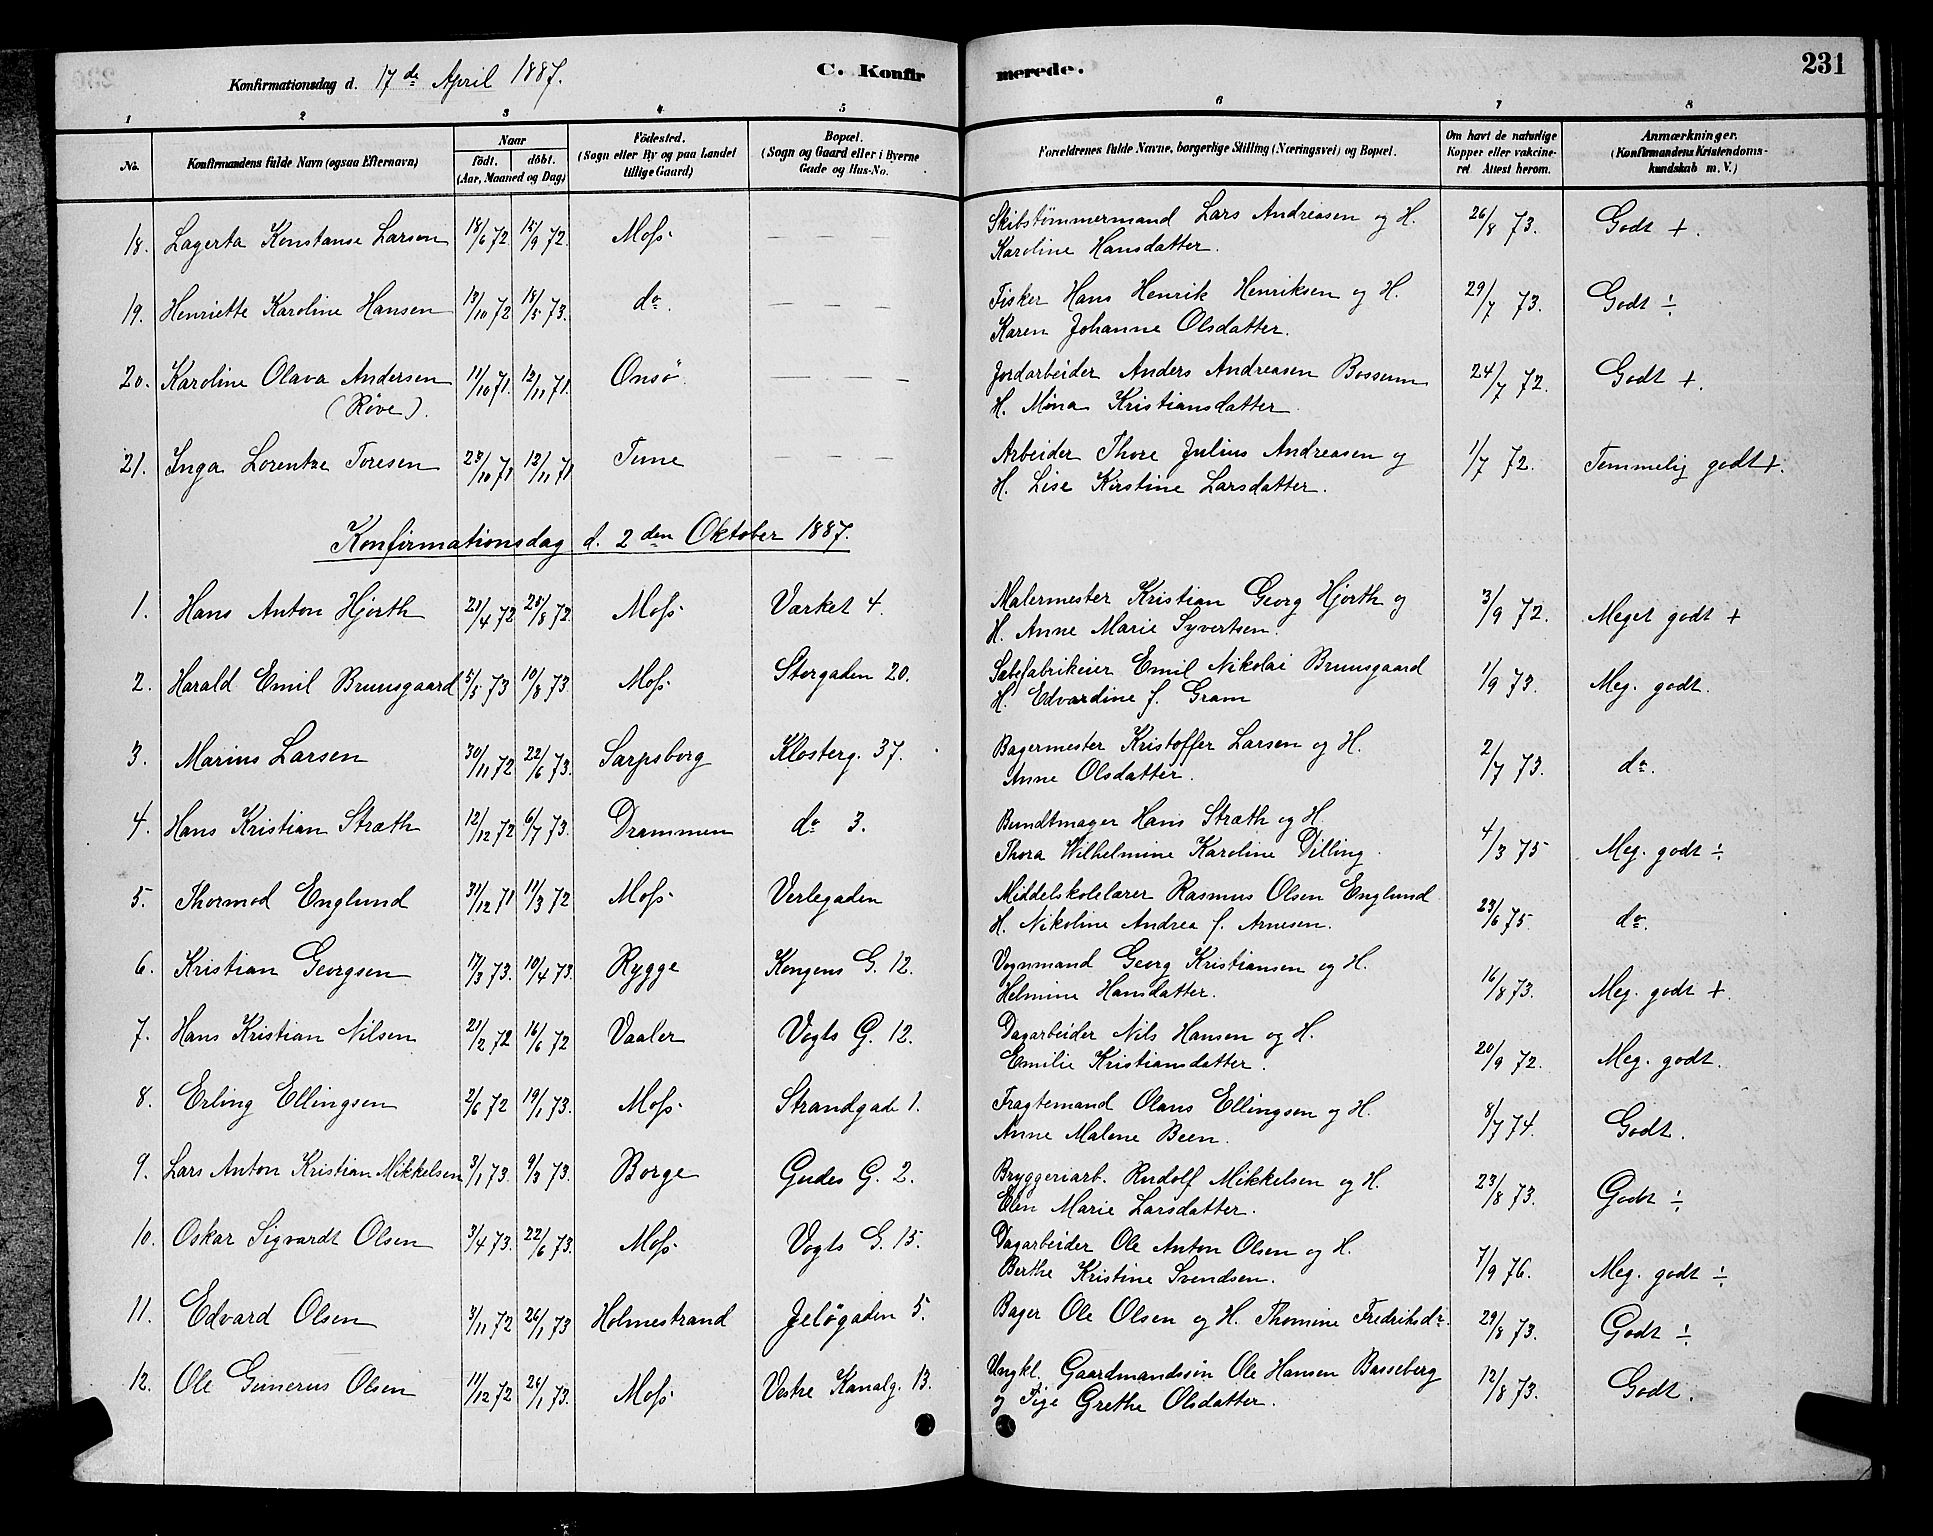 Konfirmationsdag d. 17de April 1887. C. Konfir merede. 231
1 2 3 4 5 6 7 8
No. Konfirmandens fulde Navn (ogsaa Efternavn) Naar født. døbt. (Aar, Maaned og Dag) Födested. (Sogn eller By og paa Landet tillige Gaard) Bopæl. (Sogn og Gaard eller i Byerne Gade og Hus-No. Forældrenes fulde Navne, borgerlige Stilling (Næringsvei) og Bopæl. Om havt de naturlige Kopper eller vakcineret Attest herom. Anmærkninger. (Konfirmandens Kristendomskundskab m. V.)
18. Lagerta Konstanse Larsen 18/6 72 15/9 72. Moss — — — Skibstømmermand Lars Andreasen og H. 26/8 73. Godt +.
Karoline Hansdatter.
19. Henriette Karoline Hansen 13/10 72 18/5 73. do. — — — Fisker Hans Henrik Henriksen og H. 29/7 73. Godt ÷
Karen Johanne Olsdatter.
20. Karoline Olava Andersen 11/10 71. 12/11 71. Onsö — — — Jordarbeider Anders Andreasen Bossum 24/7 72. Godt +.
(Røve). H. Mina Kristiansdatter.
21. Inga Lorentze Toresen 23/10 71 12/11 71 Tune — — — Arbeider Thore Julius Andreasen og 1/7 72. Temmelig godt +.
H. Lise Kirstine Larsdatter.
Konfirmationsdag d. 2den Oktober 1887.
1. Hans Anton Hjorth 21/4 72 25/8 72. Moss Værket 4. Malermester Kristian Georg Hjorth og 3/9 72. Meget godt +
H. Anne Marie Syvertsen.
2. Harald Emil Bruusgaard 5/5 73 10/8 73. Moss Storgaden 20. Sæbefabrikeier Emil Nikolai Bruusgaard 1/9 73. Meg. godt.
H. Edvardine f. Gram
3. Marius Larsen 30/11 72 22/6 73. Sarpsborg Klosterg. 37. Bagermester Kristoffer Larsen og H. 2/7 73. do.
Anne Olsdatter.
4. Hans Kristian Stræth 12/12 72 6/7 73. Drammen do 3. Bundtmager Hans Stræth og H. 4/3 75 Meg. godt ÷
Thora Wilhelmine Karoline Dilling.
5. Thormod Englund 31/12 71 11/3 72 Moss Verlegaden Middelskolelærer Rasmus Olsen Englund 23/6 75. do.
H. Nikoline Andrea f. Arnesen.
6. Kristian Georgsen 17/3 73. 10/4 73. Rygge Kongens G. 12. Vognmand Georg Kristiansen og H. 16/8 73. Meg. godt +.
Helmine Hansdatter.
7. Hans Kristian Nilsen 21/2 72 16/6 72 Vaaler Vogts G. 12. Dagarbeider Nils Hansen og H. 20/9 72. Meg. godt.
Emilie Kristiansdatter.
8. Erling Ellingsen 2/6 72 19/1 73. Moss Strandgade 1. Fragtemand Olaus Ellingsen og H. 8/7 74. Godt.
Anne Malene Been.
9. Lars Anton Kristian Mikkelsen 3/1 73. 9/3 73. Borge Gudes G. 2. Bryggeriarb. Rudolf Mikkelsen og H. 23/8 73. Godt ÷
Elen Marie Larsdatter.
10. Oskar Sigvardt Olsen 3/4 73. 22/6 73. Moss Vogts G. 15. Dagarbeider Ole Anton Olsen og H. 7/9 76. Meg. godt ÷
Berthe Kristine Svendsen.
11. Edvard Olsen 3/11 72 26/1 73 Holmestrand Jeløgaden 5. Bager Ole Olsen og H. Thomine Fredriksdr. 29/8 73. Godt ÷
12. Ole Gunerus Olsen 11/12 72 26/1 73. Moss Vestre Kanalg. 13. Ungkl. Gaardmandssön Ole Hansen Basseberg 12/8 73. Godt.
og Pige Grethe Olsdatter.